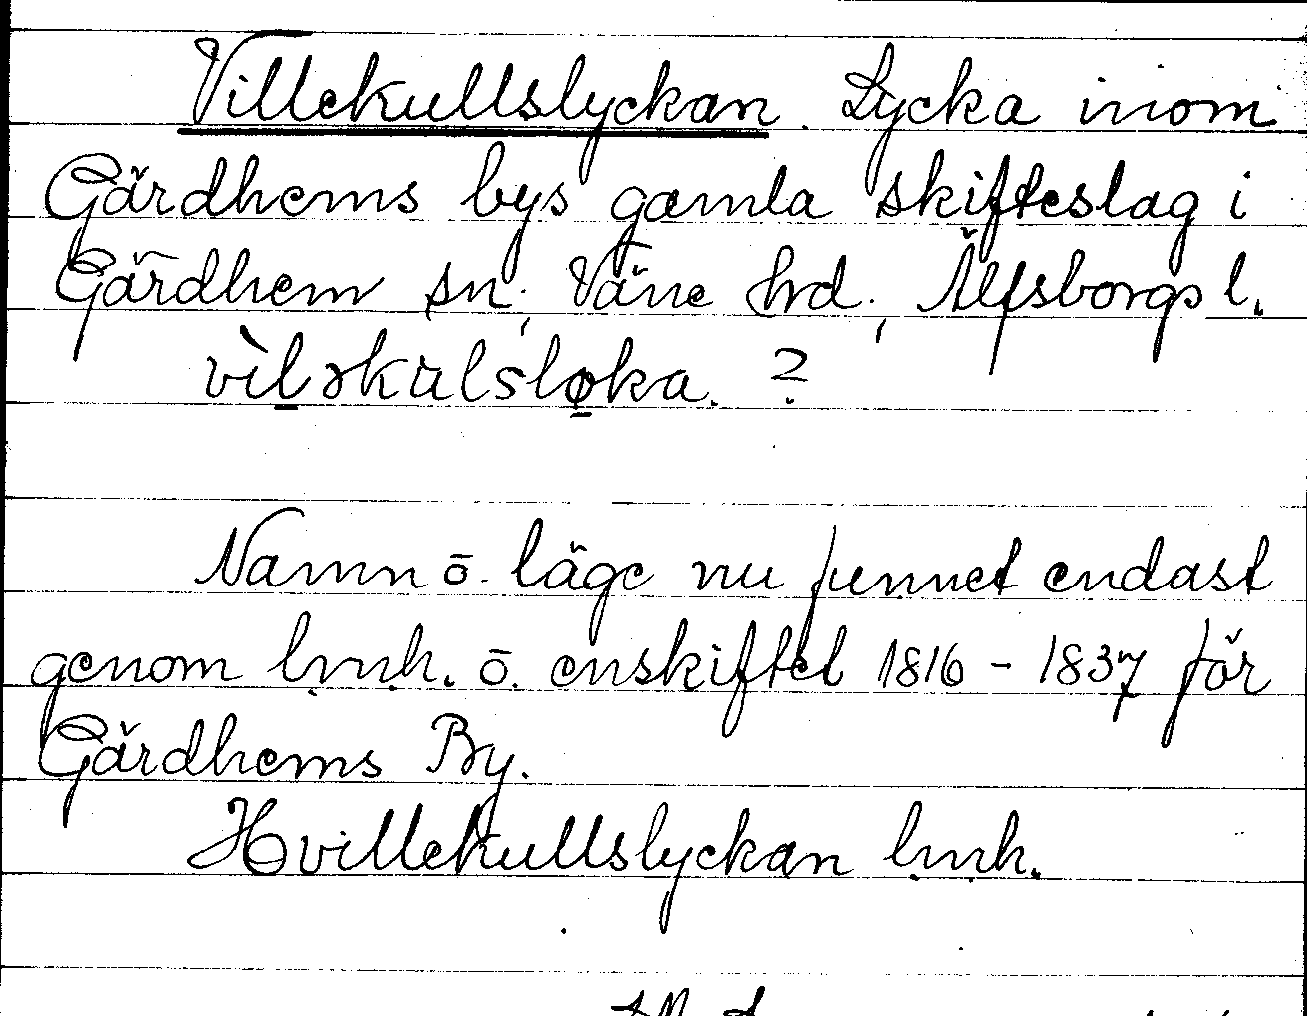 Villekullslyckan. Lycka inom
Gärdhems bys gamla skifteslag i
Gärdhem sn; Väne hrd; Älfsborgs l.
vìlɘkulsløka. ?
Namn o. läge nu funnet endast
genom lmh. o. enskiftet 1816 - 1837 för
Gärdhems By.
Hvillekullslyckan lmh.